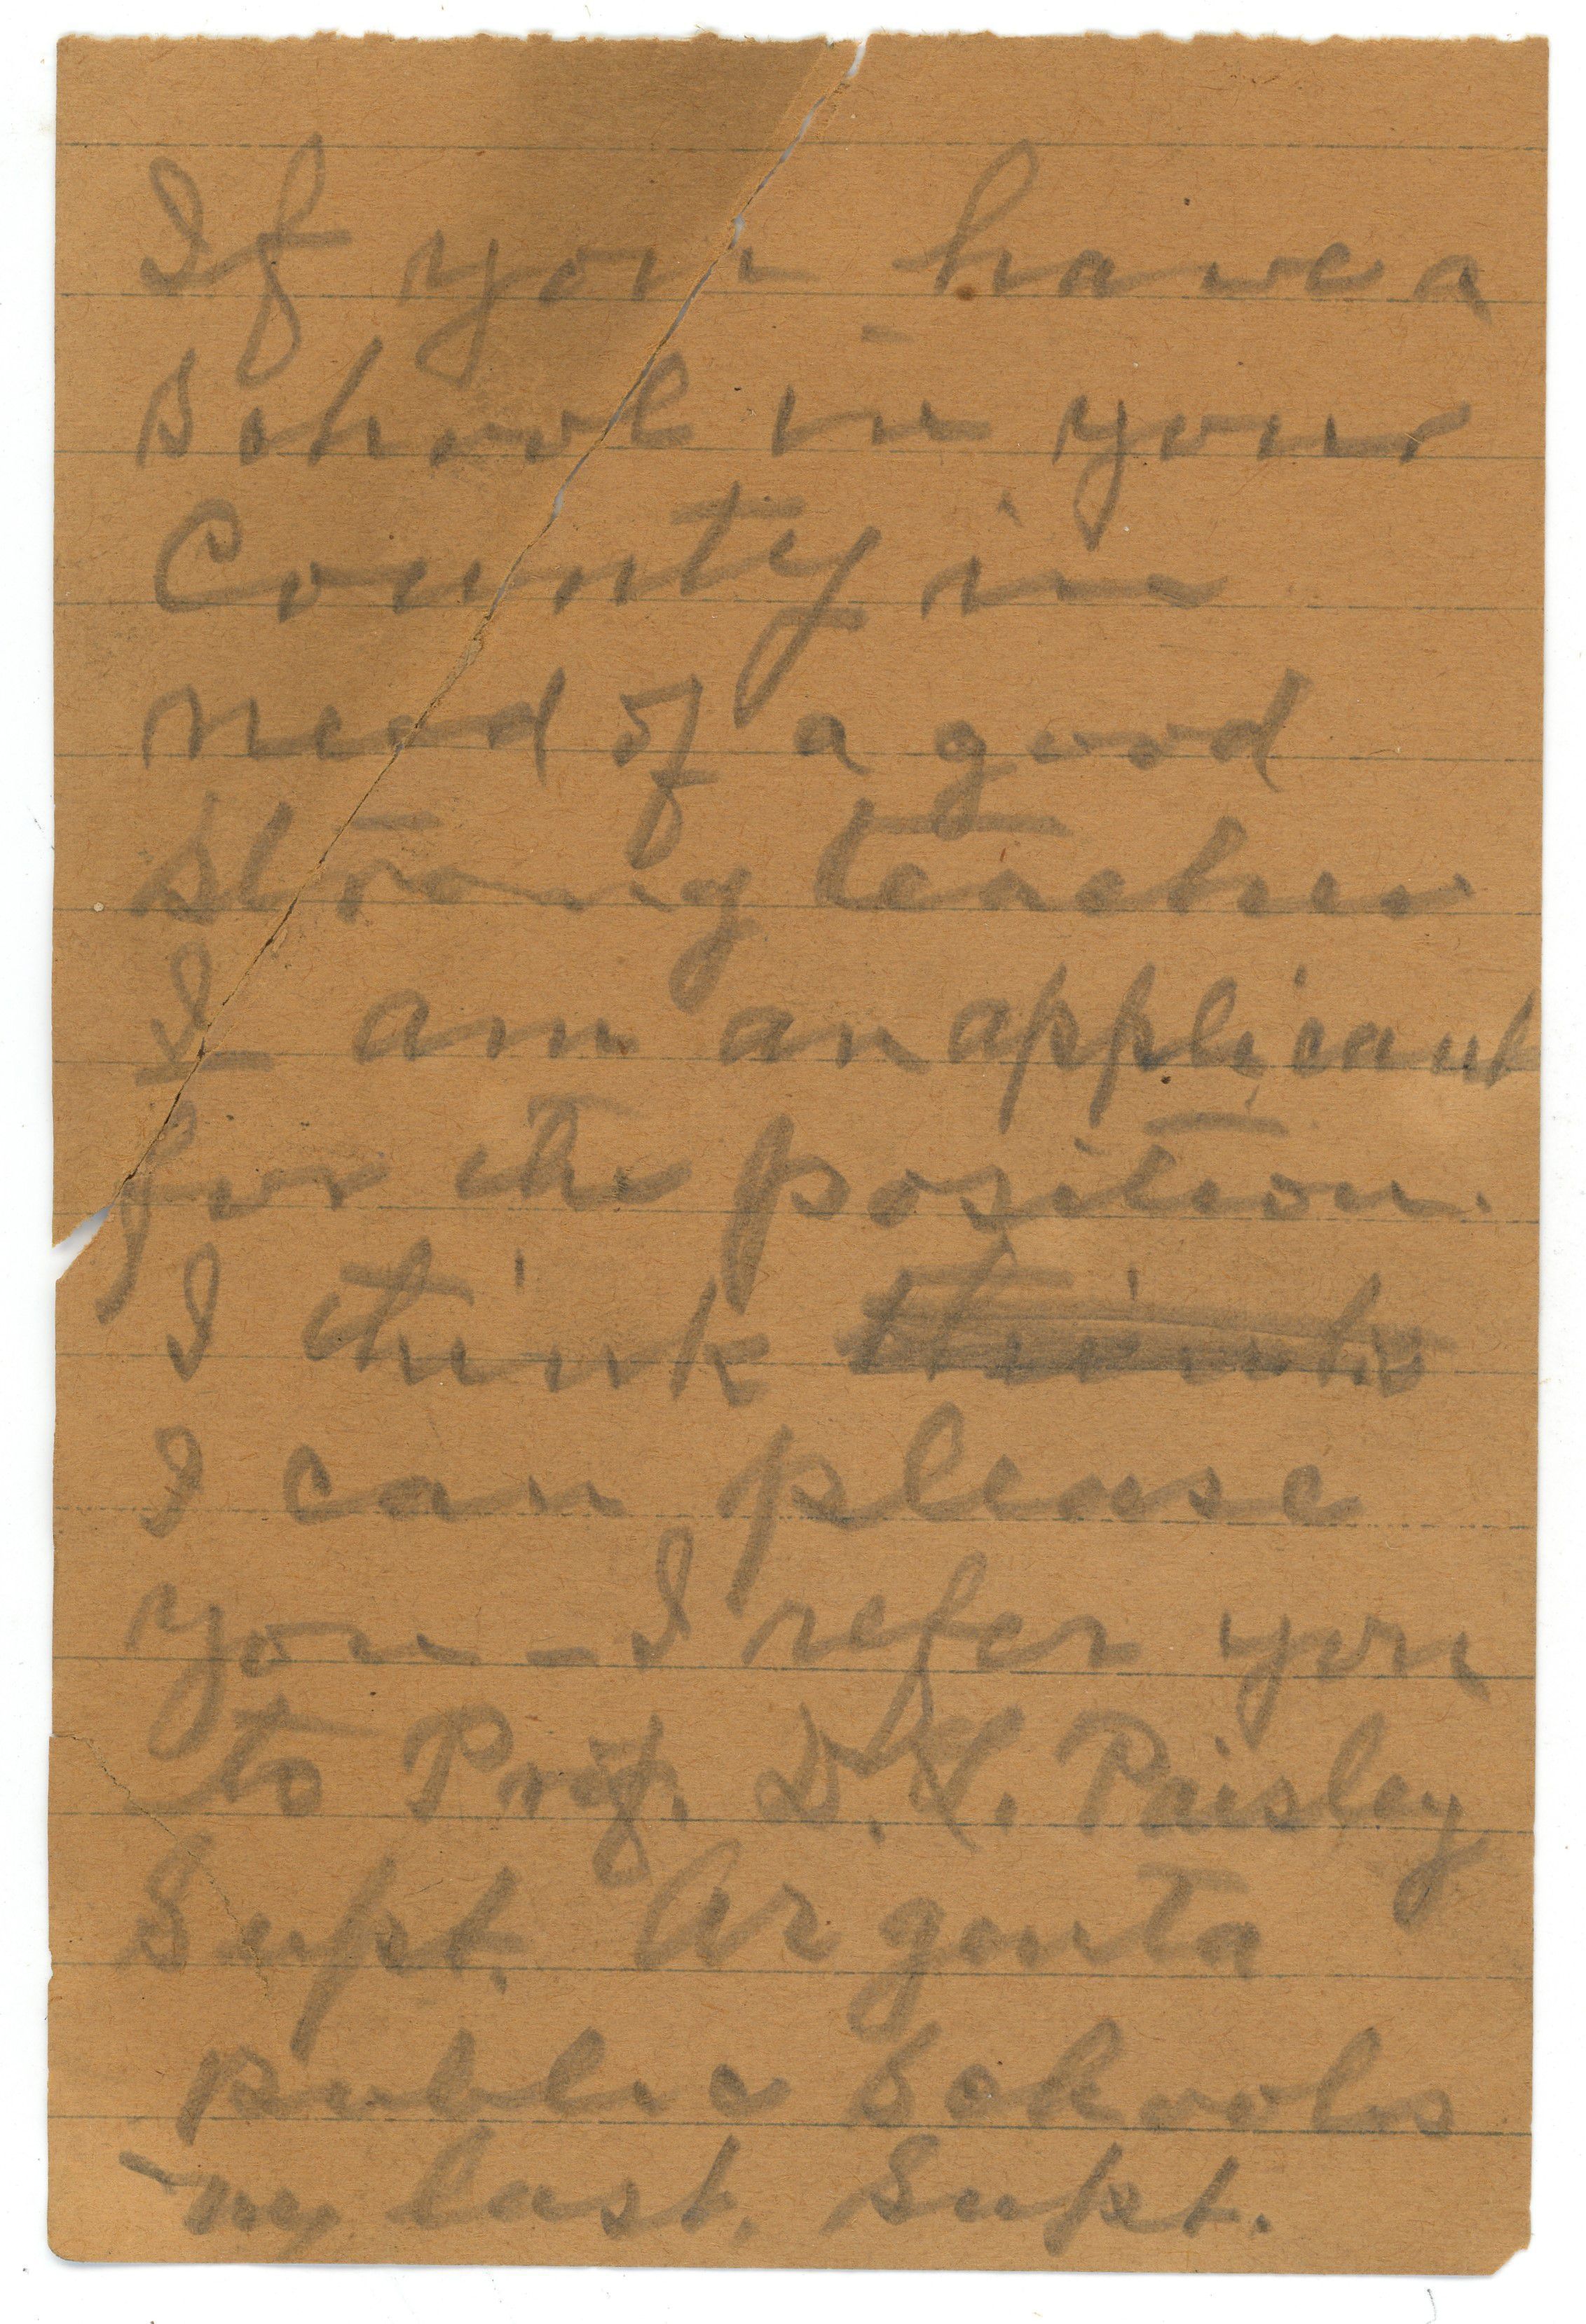 If you have a
school in your
County in
need of a good
strong teacher
I am an applicant
for the position.
I think thinks
I can please
you - I refer you
to Prof. D.L. Paisley
Supt. Argenta
public Schools
my last. Supt.